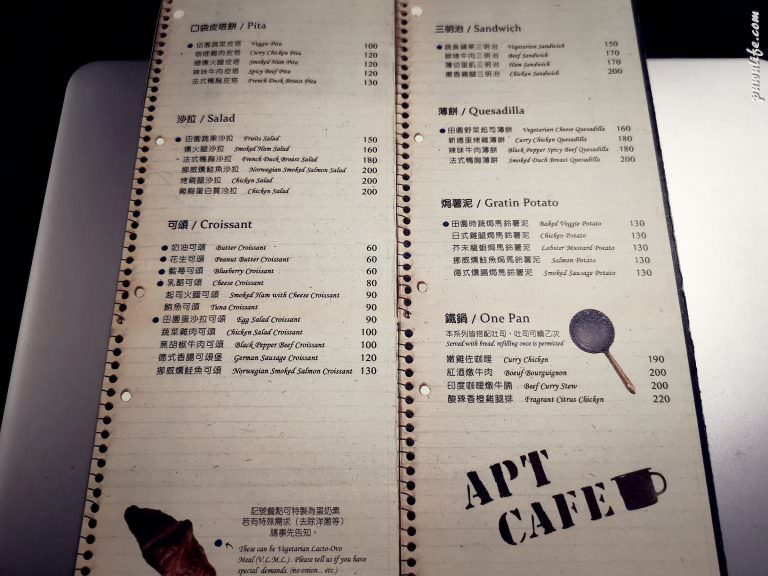 口袋皮塔餅 / Pita
● 田園蔬菜皮塔 Veggie Pita 100
咖哩雞肉皮塔 Curry Chicken Pita 120
燻烤火腿皮塔 Smoked Ham Pita 120
辣味牛肉皮塔 Spicy Beef Pita 120
法式鴨胸皮塔 French Duck Breast Pita 130
沙拉 / Salad
● 田園蔬果沙拉 Fruits Salad 150
燻火腿沙拉 Smoked Ham Salad 160
法式鴨胸沙拉 French Duck Breast Salad 180
挪威燻鮭魚沙拉 Norwegian Smoked Salmon Salad 200
烤雞腿沙拉 Chicken Salad 200
雞胸蛋白質沙拉 Chicken Salad 200
可頌 / Croissant
● 奶油可頌 Butter Croissant 60
● 花生可頌 Peanut Butter Croissant 60
● 藍莓可頌 Blueberry Croissant 60
● 乳酪可頌 Cheese Croissant 80
起司火腿可頌 Smoked Ham with Cheese Croissant 90
鮪魚可頌 Tuna Croissant 90
● 田園蛋沙拉可頌 Egg Salad Croissant 90
蔬菜雞肉可頌 Chicken Salad Croissant 100
黑胡椒牛肉可頌 Black Pepper Beef Croissant 100
德式香腸可頌堡 German Sausage Croissant 120
挪威燻鮭魚可頌 Norwegian Smoked Salmon Croissant 130
記號餐點可特製為蛋奶素
若有特殊需求（去除洋蔥等）
請事先告知。
● These can be Vegetarian Lacto-Ovo
Meal (V.L.M.L.). Please tell us if you have
special demands. (no onion... etc.)
三明治 / Sandwich
● 蔬食蘋果三明治 Vegetarian Sandwich 150
牛肉三明治 Beef Sandwich 170
薄切里肌三明治 Ham Sandwich 170
雞腿三明治 Chicken Sandwich 200
薄餅 / Quesadilla
● 田園野菜起司薄餅 Vegetarian Cheese Quesadilla 160
新德里烤雞薄餅 Curry Chicken Quesadilla 180
辣味牛肉薄餅 Black Pepper Spicy Beef Quesadilla 180
法式鴨胸薄餅 Smoked Duck Breast Quesadilla 200
焗薯泥 / Gratin Potato
● 田園時蔬焗馬鈴薯泥 Baked Veggie Potato 130
日式雞腿焗馬鈴薯泥 Chicken Potato 130
芥末龍蝦焗馬鈴薯泥 Lobster Mustard Potato 130
挪威燻鮭魚焗馬鈴薯泥 Salmon Potato 130
德式燻腸焗馬鈴薯泥 Smoked Sausage Potato 130
鐵鍋 / One Pan
本系列皆搭配吐司，吐司可續乙次
Served with bread, refilling once is permitted
嫩雞佐咖哩 Curry Chicken 190
紅酒燉牛肉 Boeuf Bourguignon 200
印度咖哩燉牛腩 Beef Curry Stew 200
酸辣香橙雞腿排 Fragrant Citrus Chicken 220
APT
CAFE
pmonlife.com